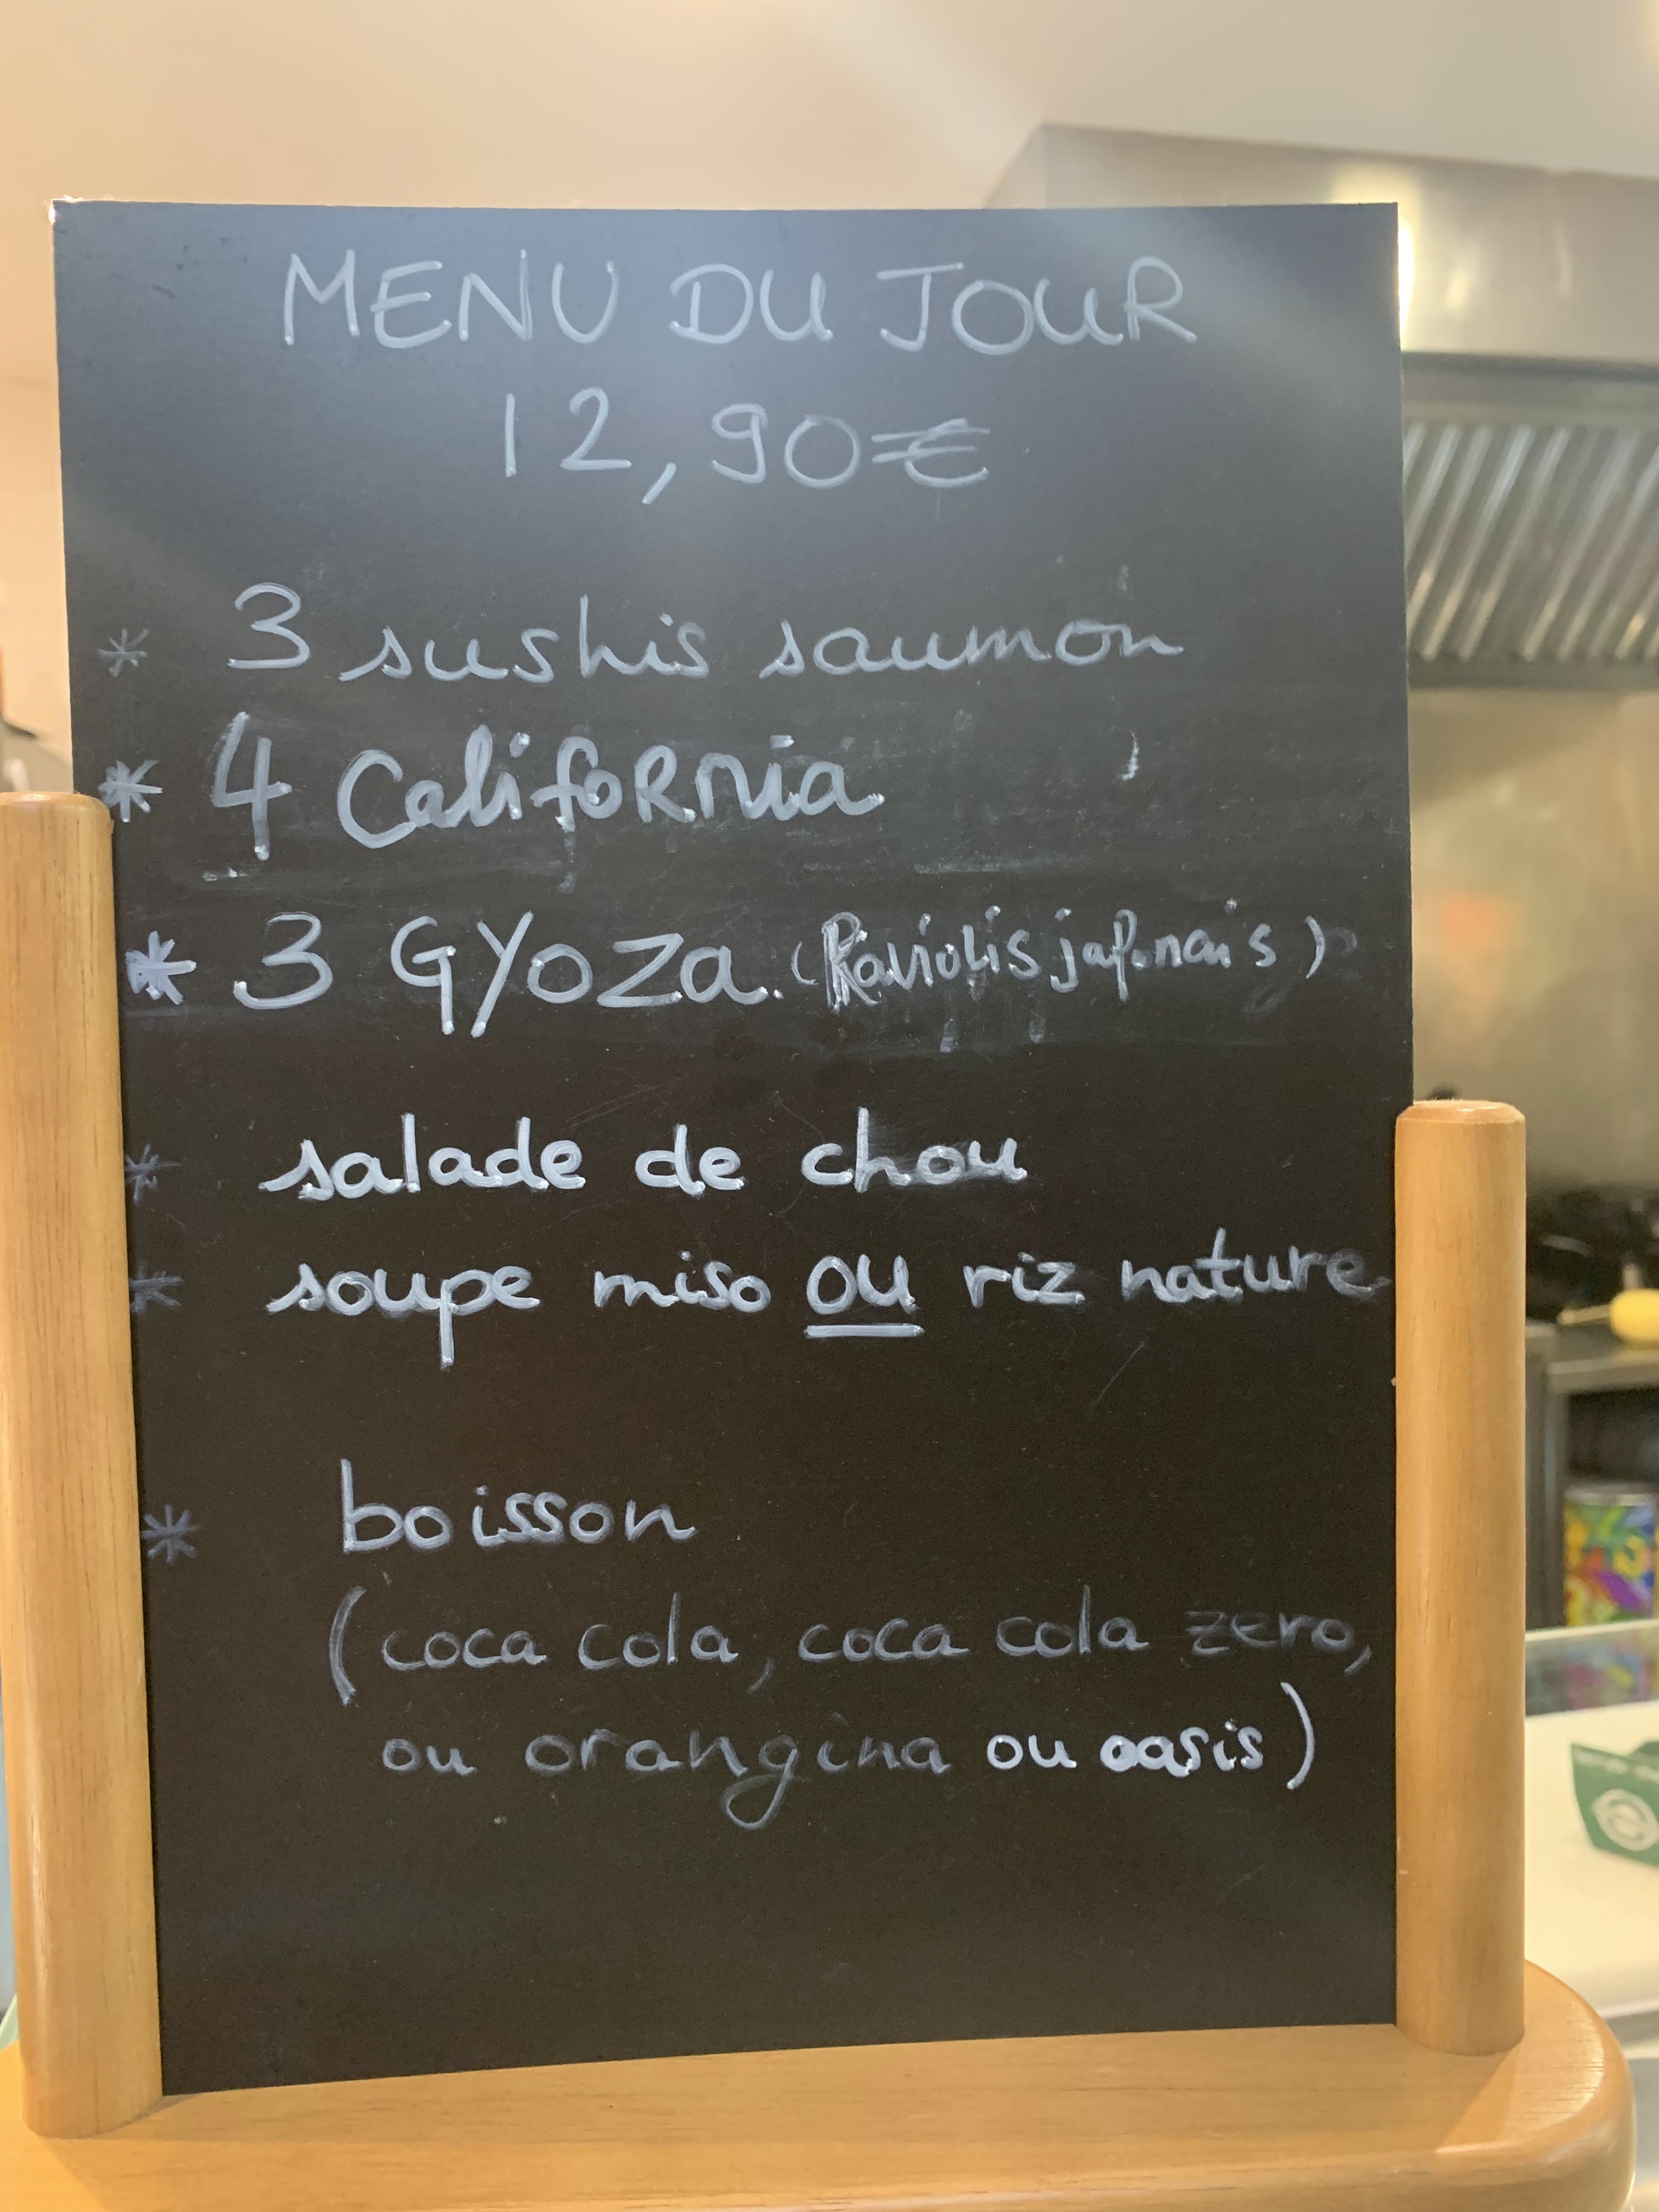 MENU DU JOUR
12,90€
* 3 sushis saumon
* 4 California
* 3 GYOZa. (Raviolis japonais)
* salade de chou
* soupe miso ou riz nature
* boisson
(coca cola, coca cola zero,
ou orangina ou oasis)